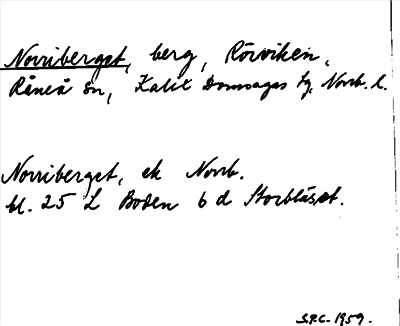 Norriberget, berg, Rörviken,
Råneå sn, Kalix Domsagas tg, Norrb. l.
Norriberget, ek Norrb.
bl. 25 L Boden 6 d Storblåset.
S.P.C. 1959.